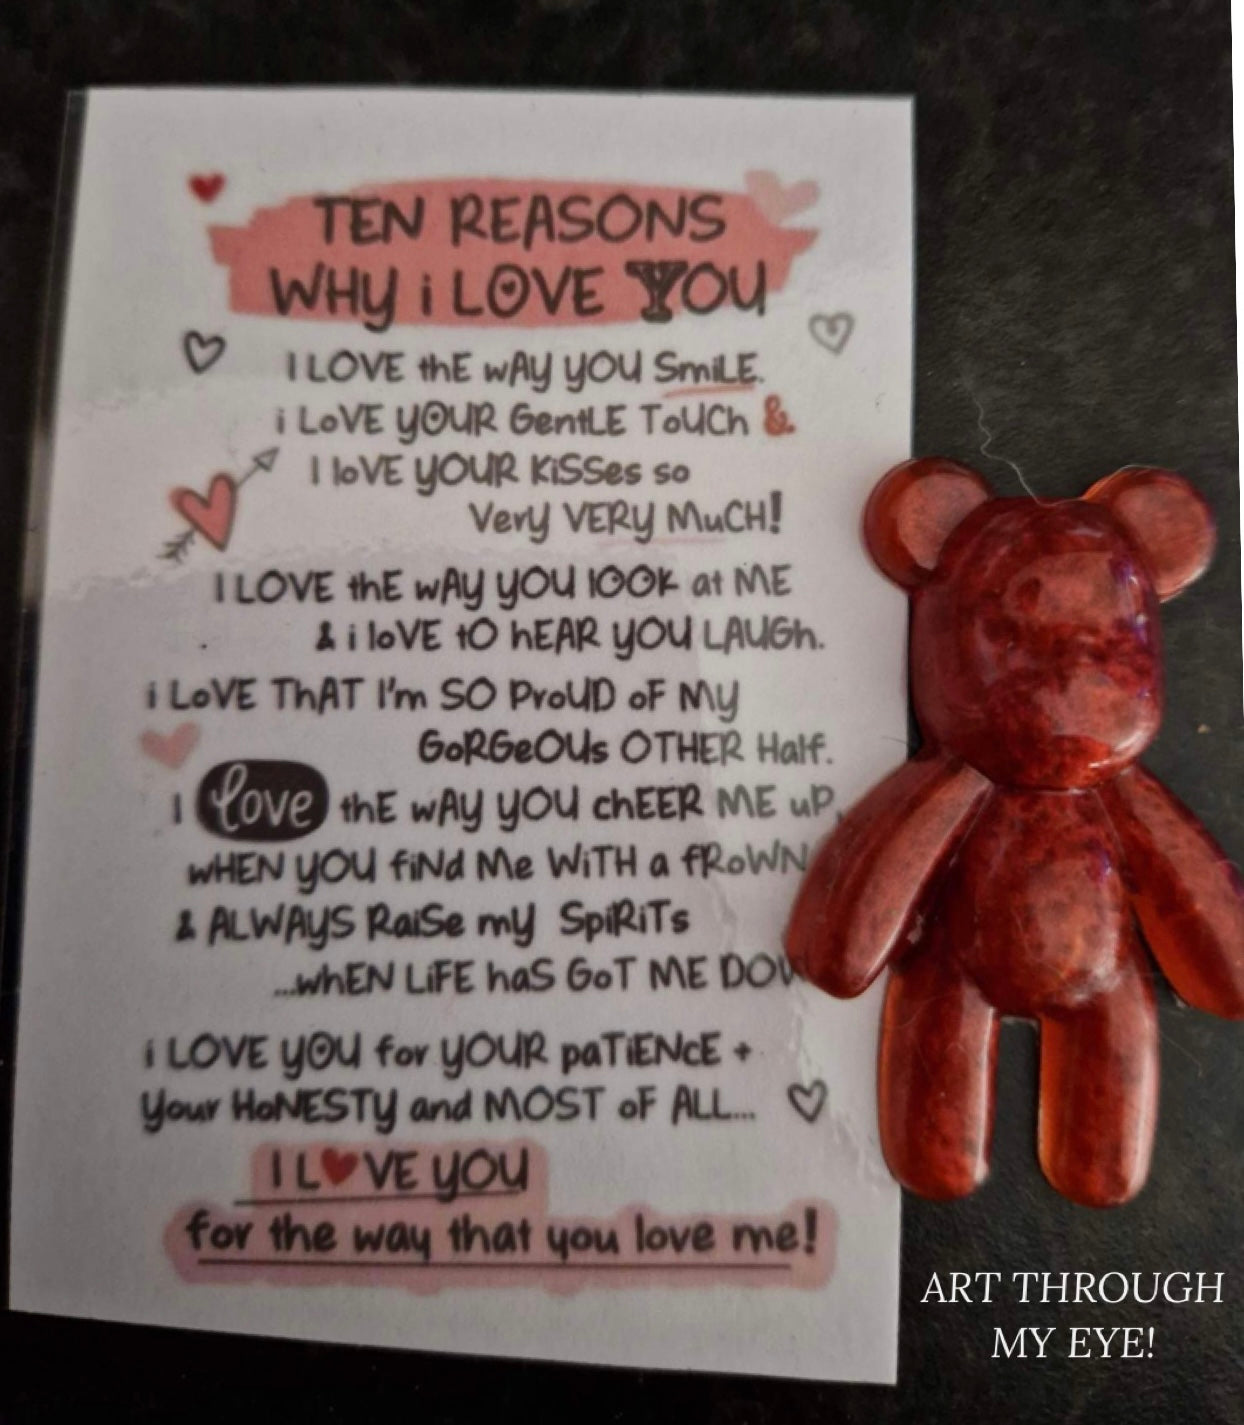 TEN REASONS
WHY i LOVE YOU
I LOVE thE wAY YOU SmiLE.
i LoVE YOUR GentLE ToUCh &
I loVE YOUR KiSSes so
Very VERY MuCH!
I LOVE thE wAY YOU lOOk at ME
& i loVE tO hEAR YOU LAUGh.
i LoVE ThAT I'm SO ProUD oF My
GoRGeOUs OTHER Half.
I love thE wAY YOU chEER ME uP,
wHEN YOU fiNd Me WiTH a fRoWN
& ALWAYS RaiSe my SpiRiTs
...whEN LiFE haS GoT ME
i LOVE YOU for YOUR paTiENcE +
Your HoNESTy and MOST oF ALL...
I LOVE YOU
for the way that you love me!
ART THROUGH
MY EYE!